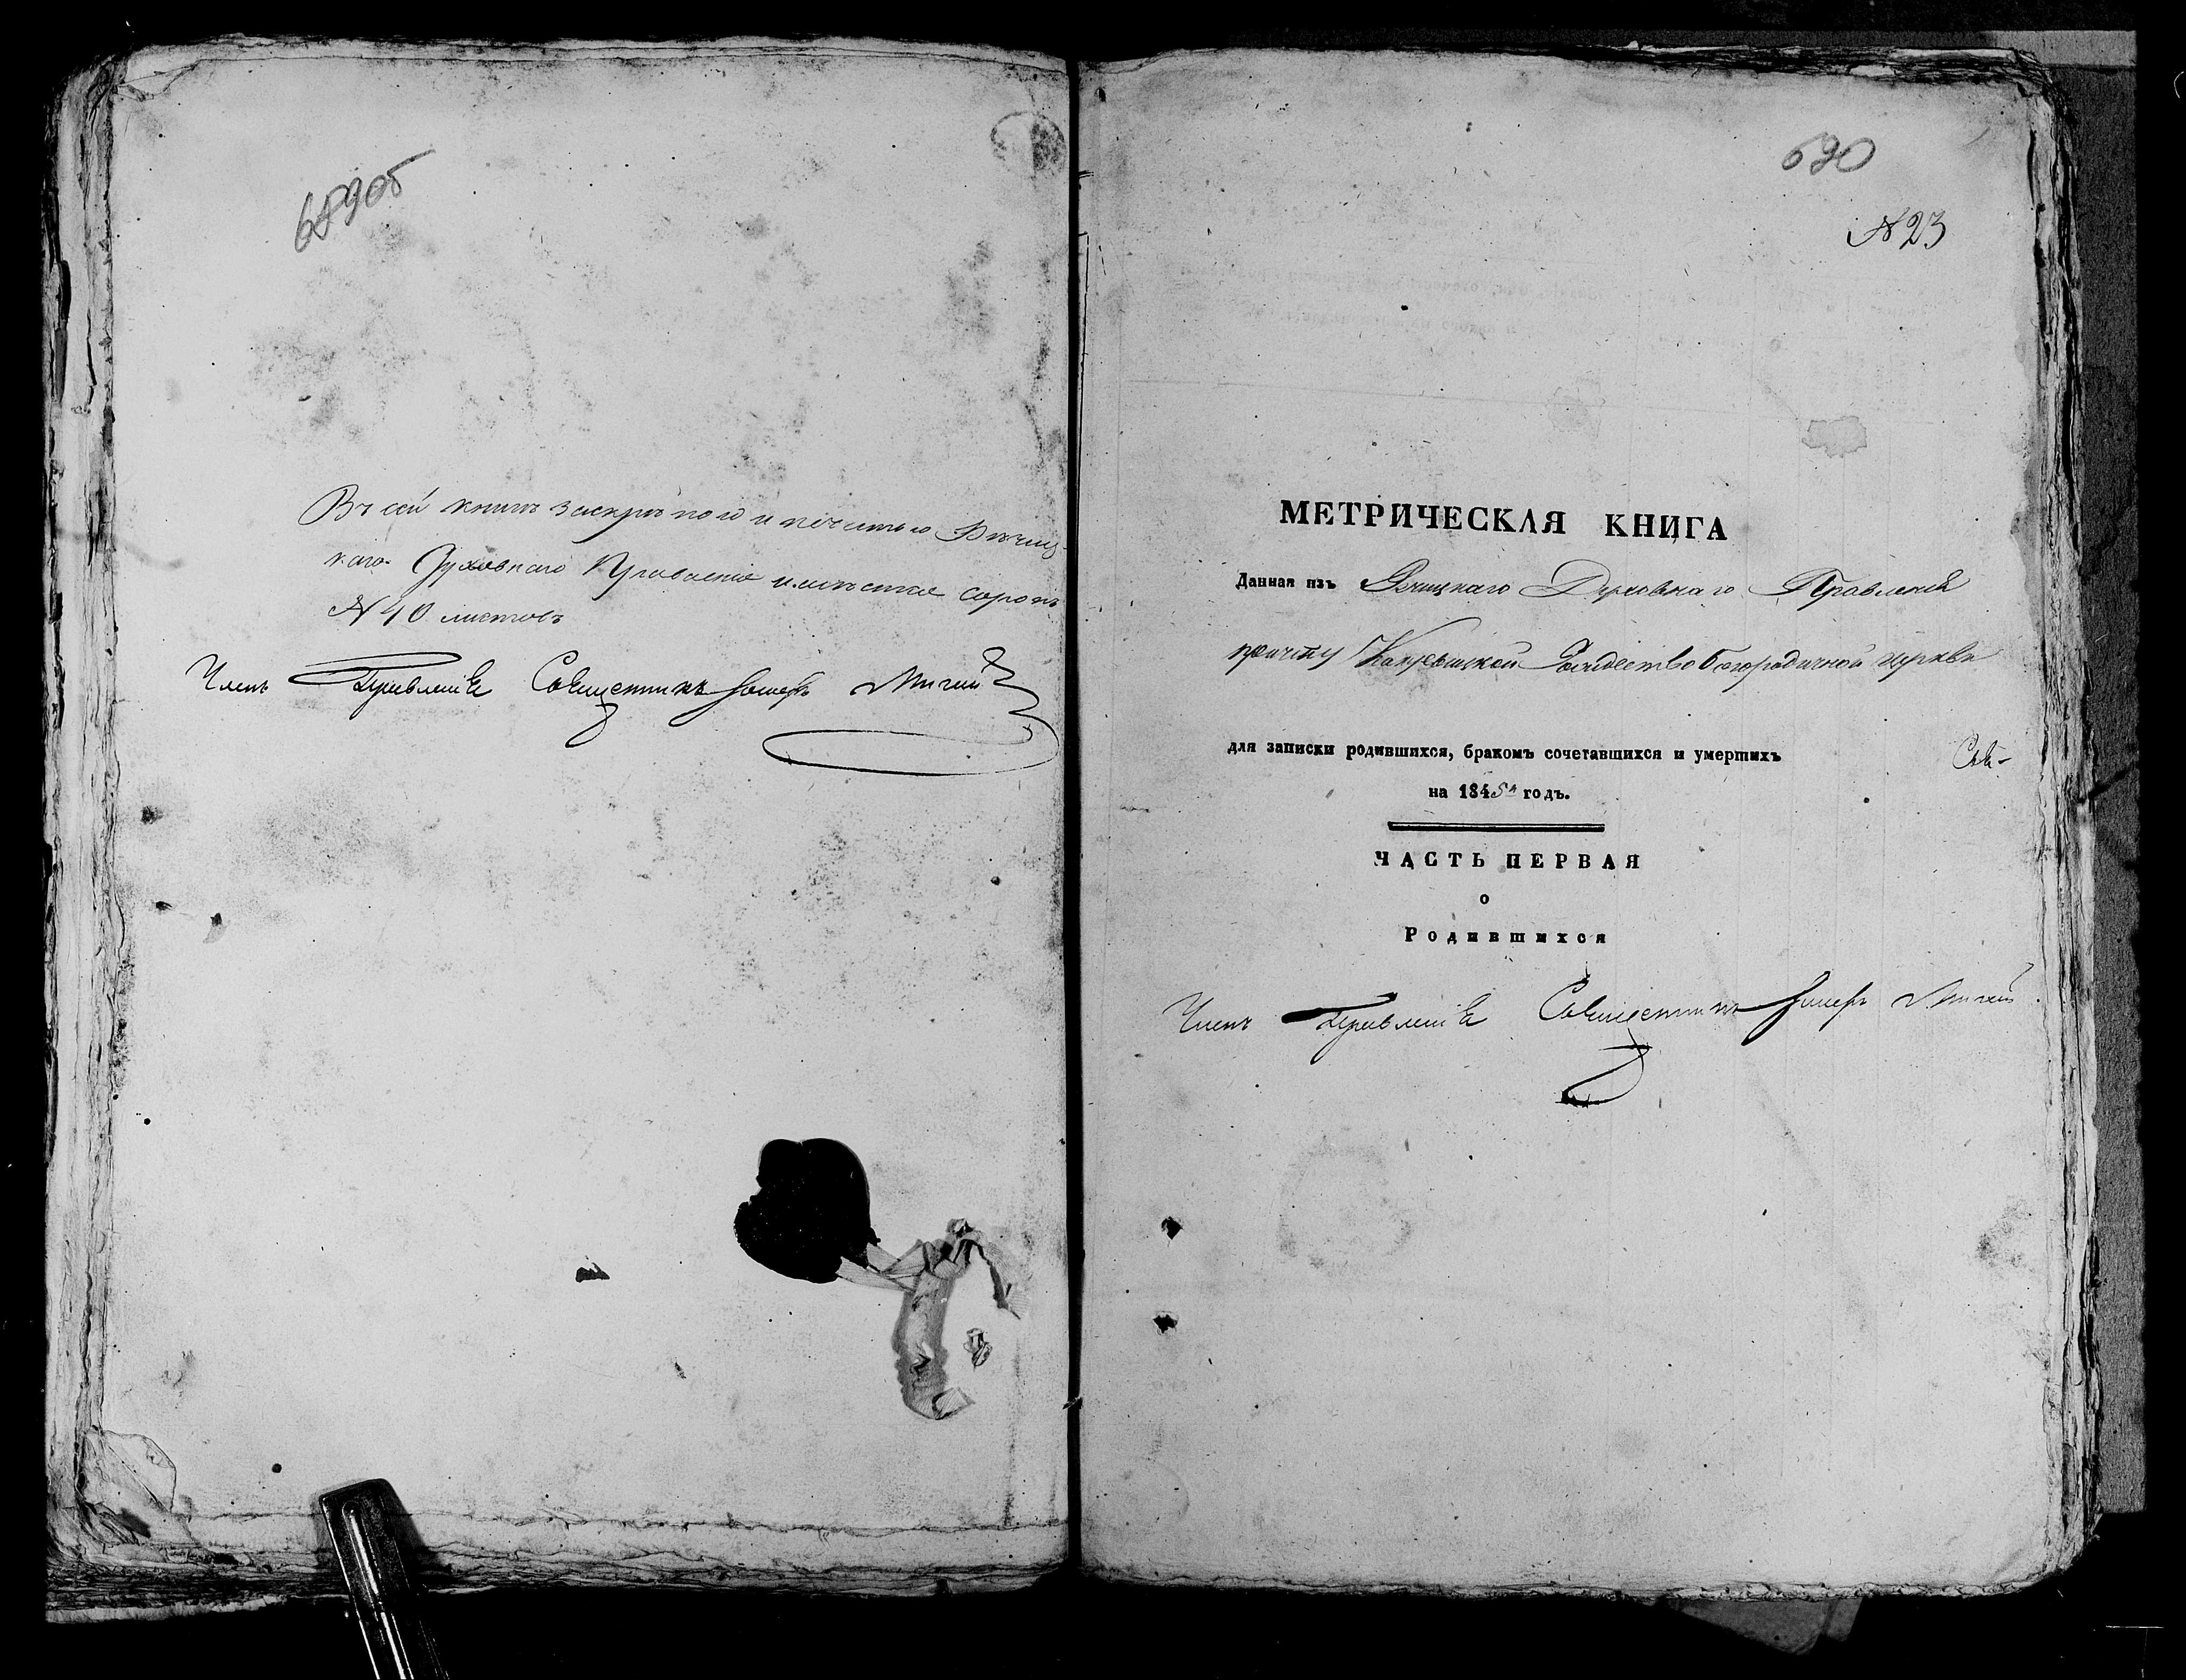 689об
Въ сей книгѣ за скрѣпою и печатью Рѣчиц-
каго Духовнаго Правленія имѣется сорокъ
№ 40 листовъ
Членъ Правленія Священникъ
690
№ 23
МЕТРИЧЕСКАЯ КНИГА
Данная изъ Рѣчицкаго Духовнаго Правленія
причту Рождество Богородичной церкви
для записки родившихся, бракомъ сочетавшихся и умершихъ
на 1845й годъ.
ЧАСТЬ ПЕРВАЯ
о
Родившихся
Членъ Правленія Священникъ